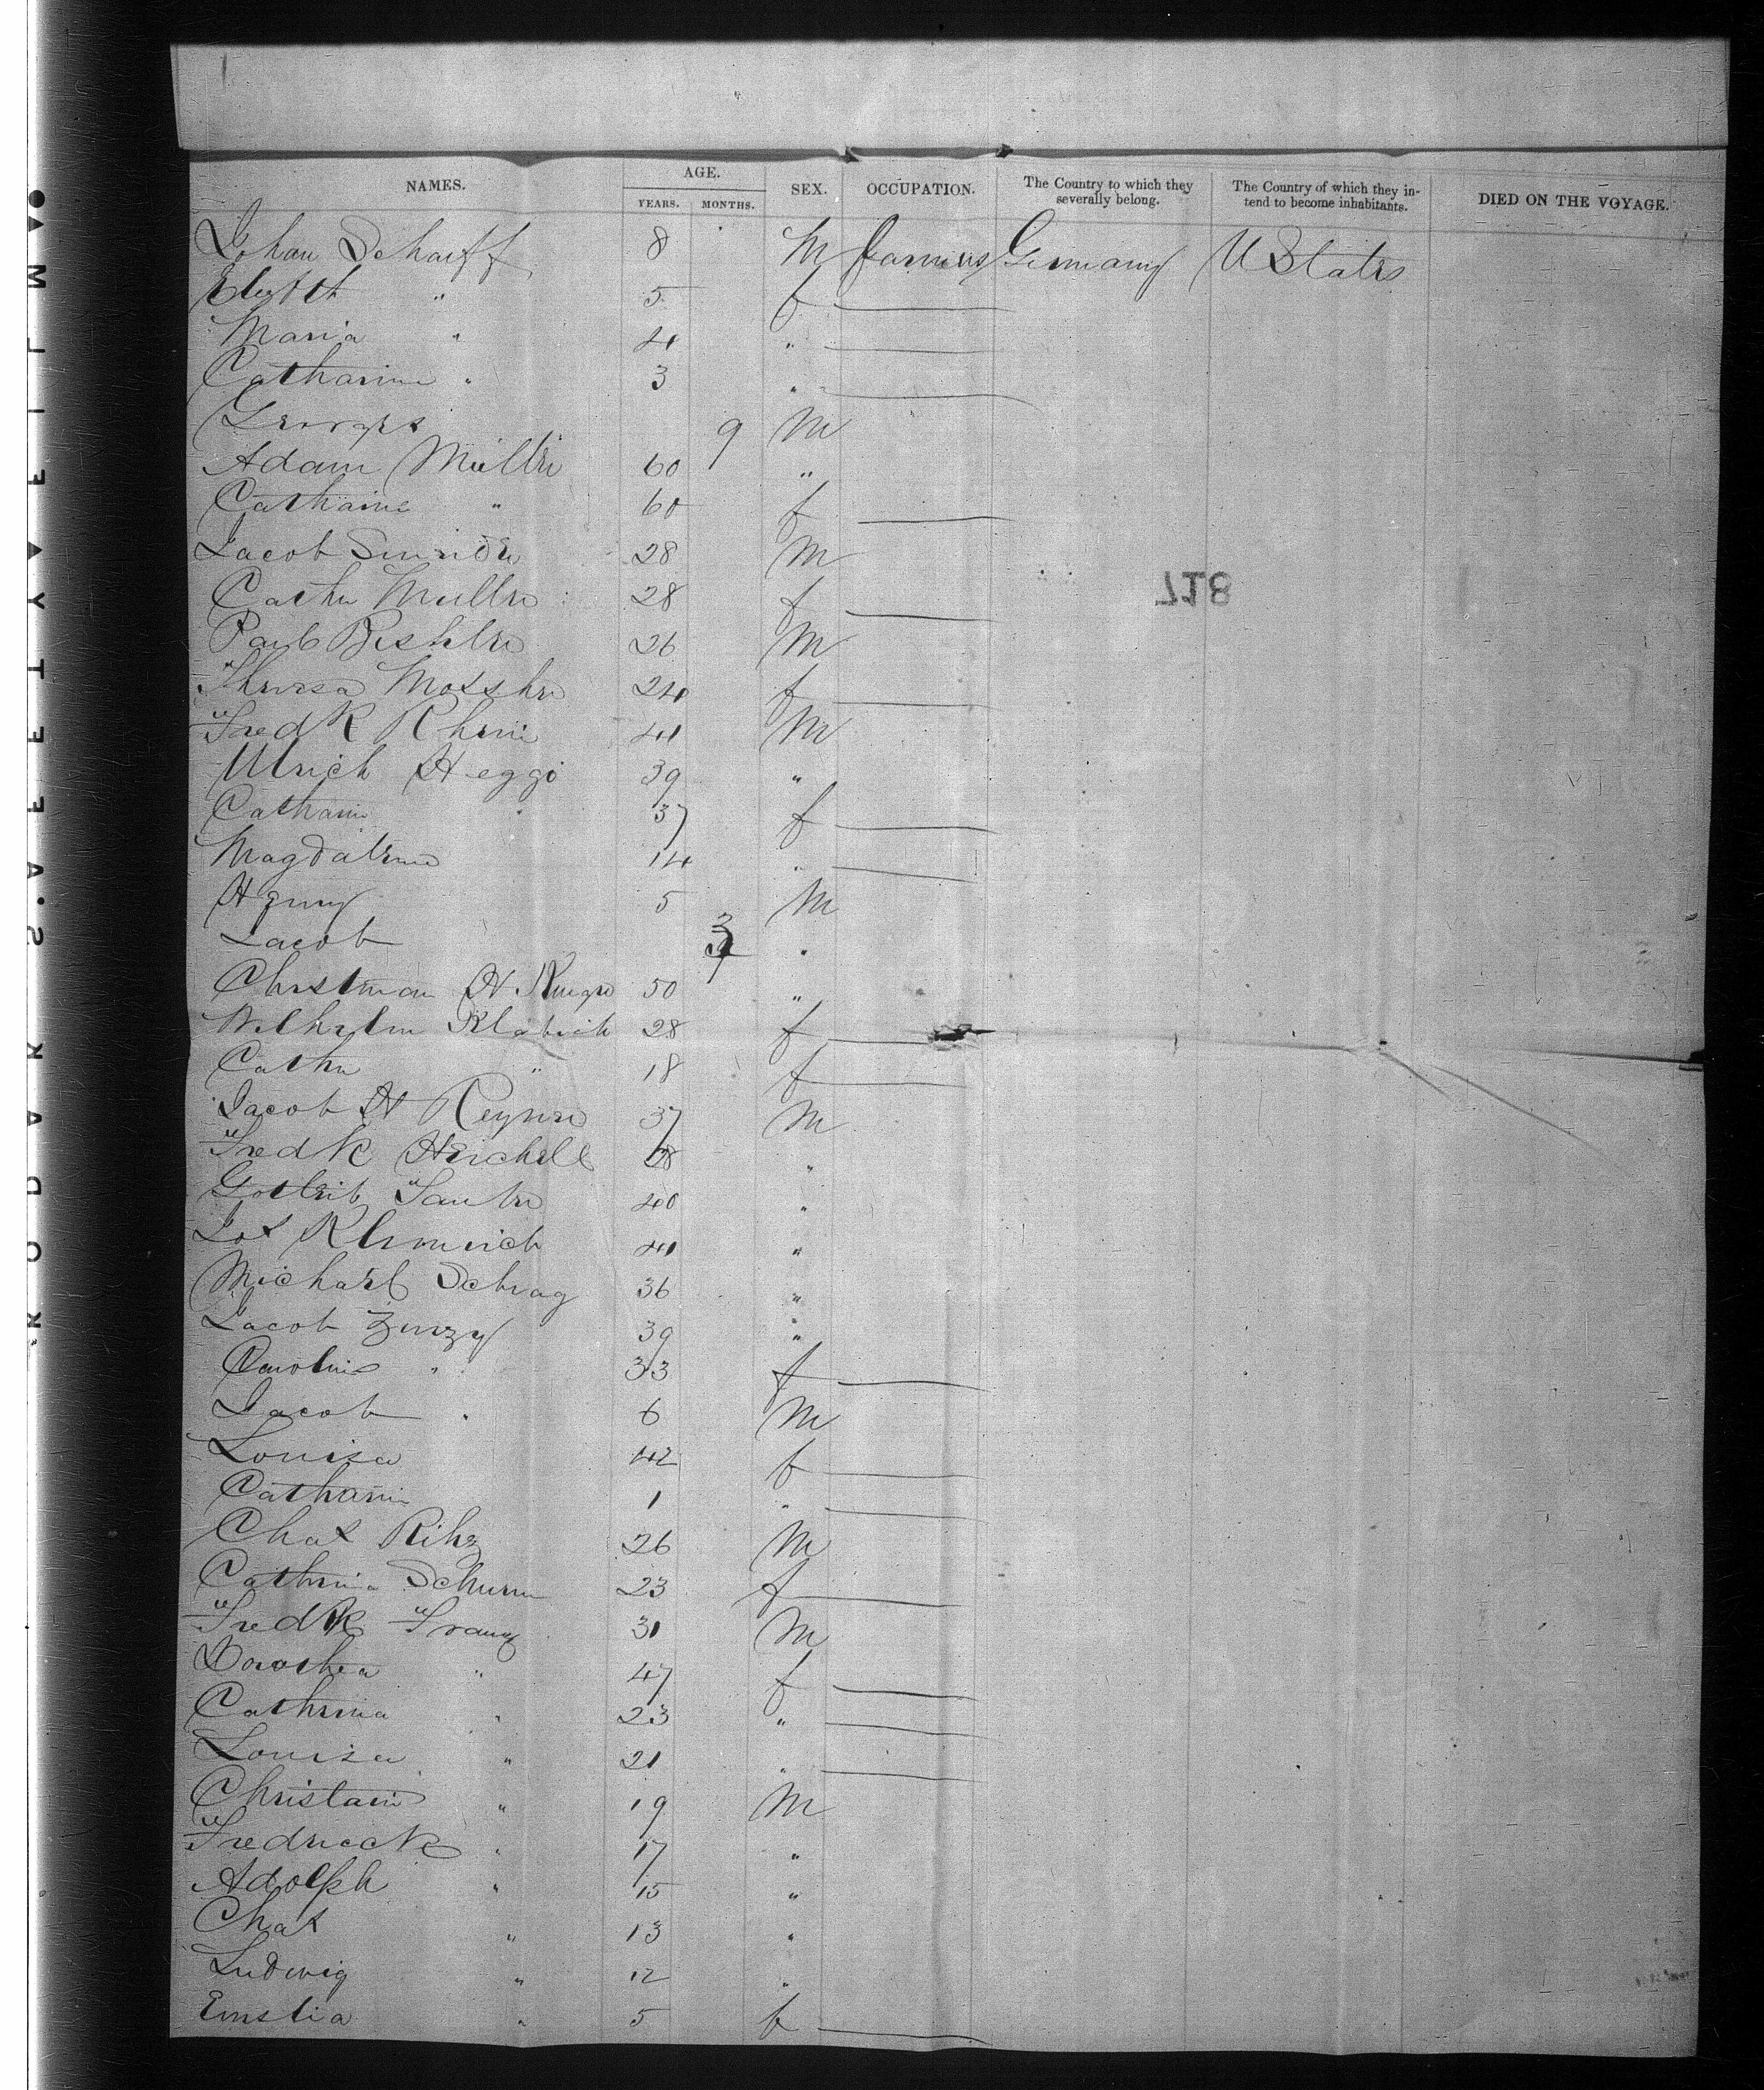 NAMES. AGE. SEX. OCCUPATION. The Country to which they severally belong. The Country of which they intend to become inhabitants. DIED ON THE VOYAGE.
YEARS. MONTHS.
Johan Scharff 8 M Farmers Germany U States
Elizbth " 5 f
Maria " 4 "
Catharina " 3 "
Georges 9 M
Adam Müller 60 "
Catharine " 60 f
Jacob 28 M
Cathe Muller 28 f
Paul 26 M
Theresa 24 f
Fredk Rhein 41 M
Ulrich Heggi 39 "
Catharin " 37 f
Magdalena 14 "
Henry 5 M
Jacob 3 "
Christman H 50 "
Wilhelm 28 f
Cathe " 18 f
Jacob H 37 M
Fredk Heichell 28 "
Gottleib Sauter 40 "
Jos 41 "
Michael Schrag 36 "
Jacob 39 "
Caroline " 33 f
Jacob " 6 M
Louisa 42 f
Catharin 1 "
Chas Rihs 26 M
Cathrina 23 f
Fredk Franz 31 M
Dorothea " 47 f
Cathrina " 23 "
Louisa " 21 "
Christain " 19 M
Fredrick " 17 "
Adolph " 15 "
Chas " 13 "
Ludwig " 12 "
" 5 f
718